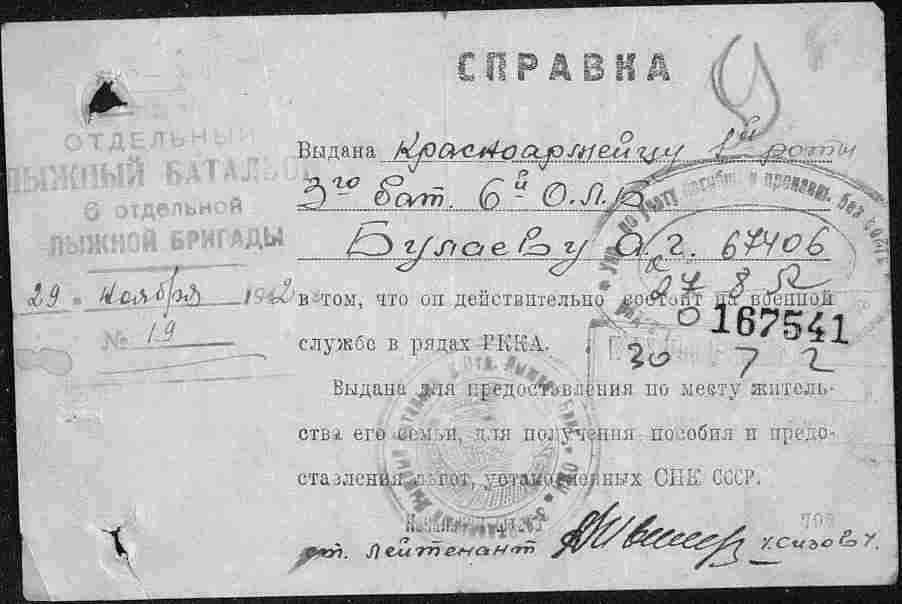 СПРАВКА
ОТДЕЛЬНЫЙ
ЛЫЖНЫЙ БАТАЛЬОН
6 отдельной
ЛЫЖНОЙ БРИГАДЫ
29 " ноября 1942
№ 19
Выдана Красноармейцу 1й роты
3го бат. 6й О.Л.Б.
Булаеву А.Г. 67406
27 8 52
в том, что он действительно состоит на военной
0167541
службе в рядах РККА.
30 7 2
Выдана для предоставления по месту житель-
ства его семьи, для получения пособия и предо-
ставления льгот, установленных СНК СССР.
ст. лейтенант /Сизов/